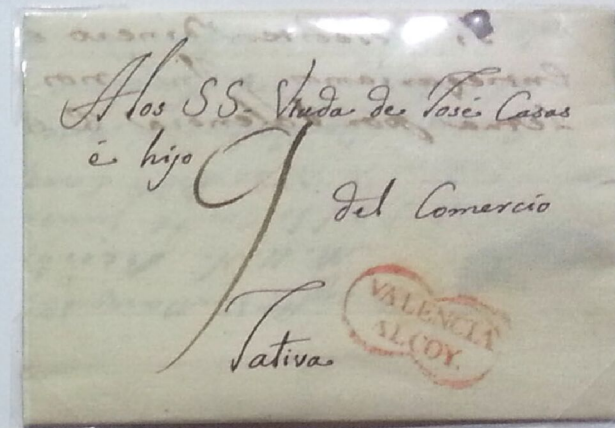 A los SS. Viuda de José Casas
é hijo
9
del Comercio
Jativa
VALENCIA
ALCOY.